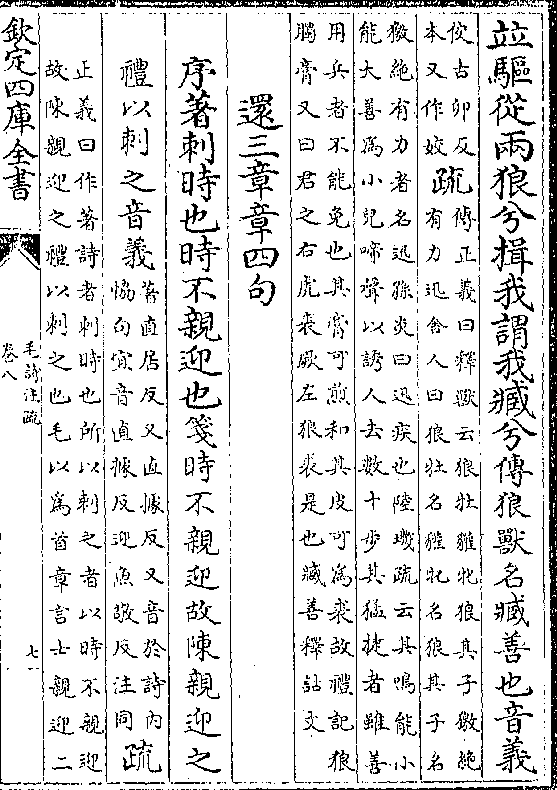 並驅從兩狼兮揖我謂我臧兮傳狼獸名臧善也音義
佼古卯反
本又作姣
疏
傳正義曰釋獸云狼牡貛牝狼其子獥絶
有力迅舍人曰狼牡名貛牝名狼其子名
獥絶有力者名迅孫炎曰迅疾也陸璣疏云其鳴能小
能大善爲小兒啼聲以誘人去數十步其猛捷者雖善
用兵者不能免也其膏可煎和其皮可爲裘故禮記狼
臅膏又曰君之右虎裘厥左狼裘是也臧善釋詁文
還三章章四句
序著刺時也時不親迎也箋時不親迎故陳親迎之
禮以刺之音義
著直居反又直據反又音於詩内
協句宜音直據反迎魚敬反注同
疏
正義曰作著詩者刺時也所以刺之者以時不親迎
故陳親迎之禮以刺之也毛以爲首章言士親迎二
欽定四庫全書
毛詩注疏
卷八
七